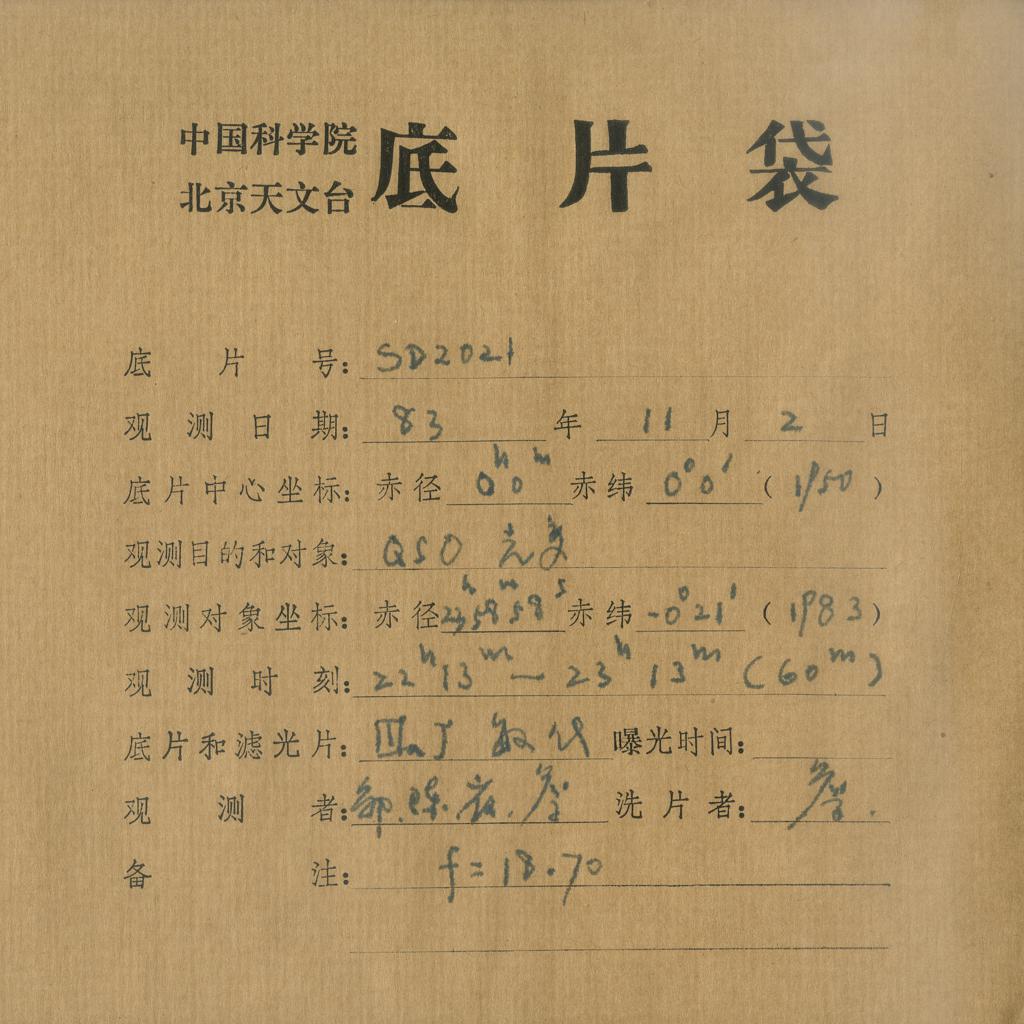 中国科学院
北京天文台
底片袋
底片号: SD2021
观测日期: 83年11月2日
底片中心坐标: 赤径 0ʰ0ᵐ 赤纬 0°0′ (1950)
观测目的和对象: QSO 光变
观测对象坐标: 赤径 23ʰ58ᵐ58ˢ 赤纬 -0°21′ (1983)
观测时刻: 22ʰ13ᵐ — 23ʰ13ᵐ (60ᵐ)
底片和滤光片: IIIaJ 敏化 曝光时间:
观测者: 邹.陈. 洗片者:
备注: f=18.70